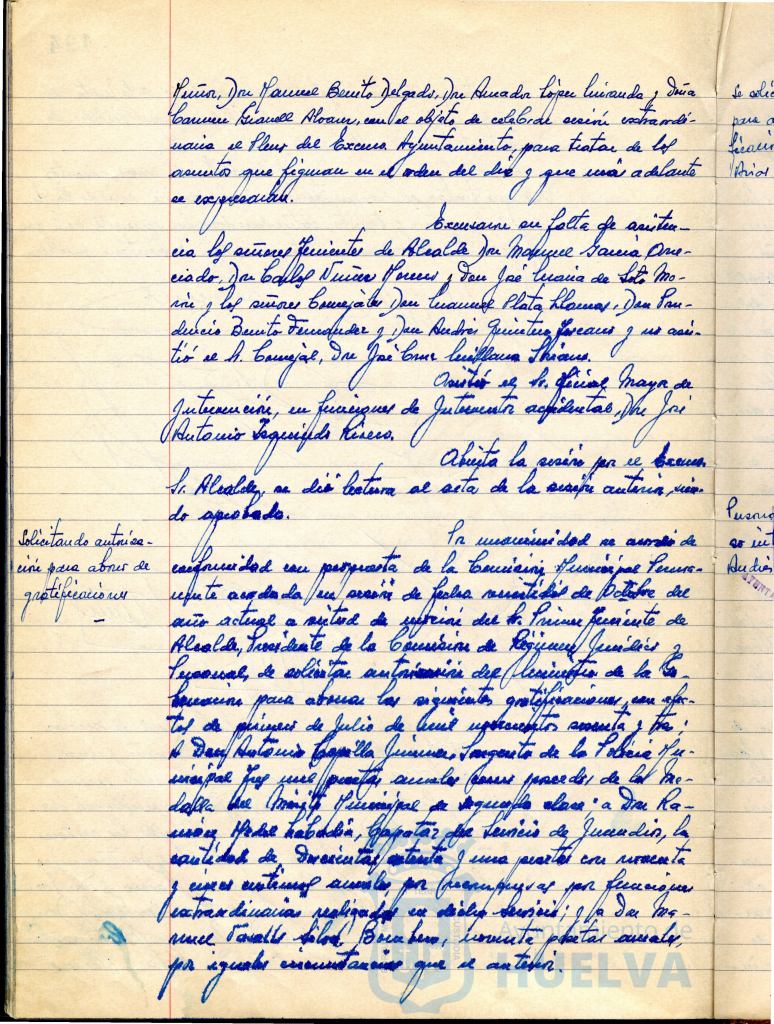 Muñoz, Don Manuel Benito Delgado, Don Amador López Miranda y Doña
Carmen Gianell Alvarez, con el objeto de celebrar sesión extraordi-
naria el Pleno del Excmo. Ayuntamiento, para tratar de los
asuntos que figuran en el orden del día y que más adelante
se expresarán.
Excusaron su falta de asisten-
cia los señores Tenientes de Alcalde Don Manuel García One-
ciado, Don Carlos Núñez Moreno y Don José María de Soto Mo-
rón y los señores Concejales Don Manuel Plata Llamas, Don Pru-
dencio Benito Fernández y Don Andrés Quintero Toscano y no asis-
tió el Sr. Concejal, Don José Cruz Soriano.
Asistió el Sr. Oficial Mayor de
Intervención, en funciones de Interventor accidental, Don José
Antonio Izquierdo Rivero.
Abierta la sesión por el Excmo.
Sr. Alcalde, se dió lectura al acta de la sesión anterior, sien-
do aprobada.
Solicitando autoriza-
ción para abono de
gratificaciones
Por unanimidad se acordó de
conformidad con propuesta de la Comisión Municipal Perma-
nente acordada en sesión de fecha veintidós de Octubre del
año actual a virtud de moción del Sr. Primer Teniente de
Alcalde, Presidente de la Comisión de Régimen Jurídico y
Personal, de solicitar autorización del Ministro de la Go-
bernación para abonar las siguientes gratificaciones, con efec-
tos de primero de Julio de mil novecientos sesenta y tres:
A Don Antonio Capilla Jiménez, Sargento de la Policía Mu-
nicipal Tres mil pesetas anuales como poseedor de la Me-
dalla del Mérito Municipal de segunda clase; a Don Ra-
món Medel, Capataz del Servicio de Incendios, la
cantidad de Doscientas setenta y una pesetas con noventa
y cinco céntimos anuales, por recompensas por funciones
extraordinarias realizadas en dicho servicio; y a Don Ma-
nuel Silva, Bombero, noventa pesetas anuales,
por iguales circunstancias que el anterior.
Ayuntamiento de
HUELVA
Se solic
para a
Arias
Persona
so int
Andrés